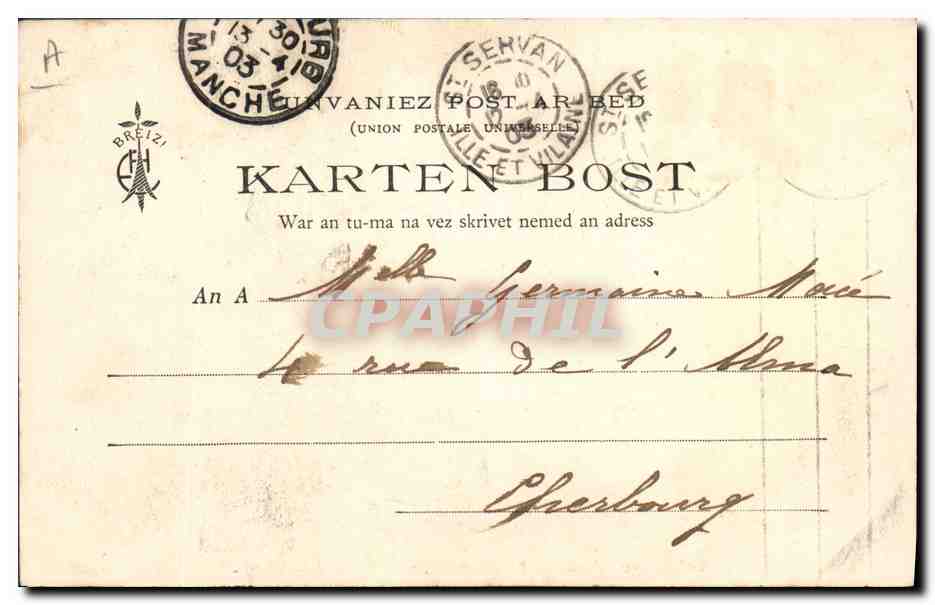 A
OURG
13 30
-4
03
MANCHE
ST SERVAN
03
ILLE-ET-VILAINE
ST SE
ET V
BREIZ!
UNVANIEZ POST AR BED
(UNION POSTALE UNIVERSELLE)
KARTEN BOST
War an tu-ma na vez skrivet nemed an adress
An A Melle Germaine Macé
CPAPHIL
4 rue de l'Alma
Cherbourg